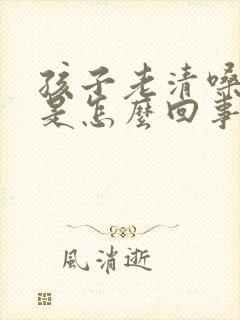 孩子老清嗓
是怎麼回事
風消逝